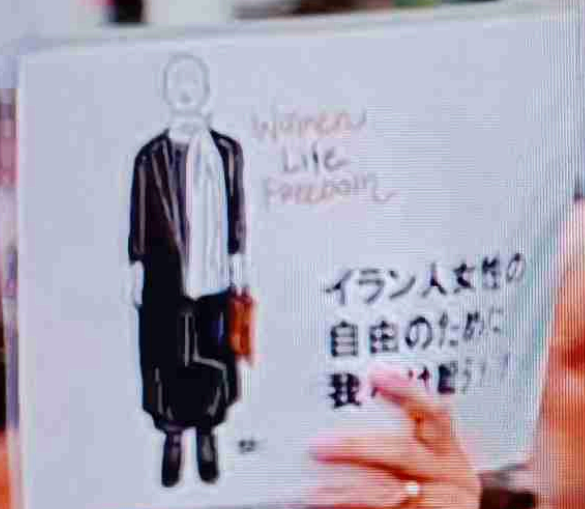 Women
Life
Freedom
イラン人女性の
自由のために
我